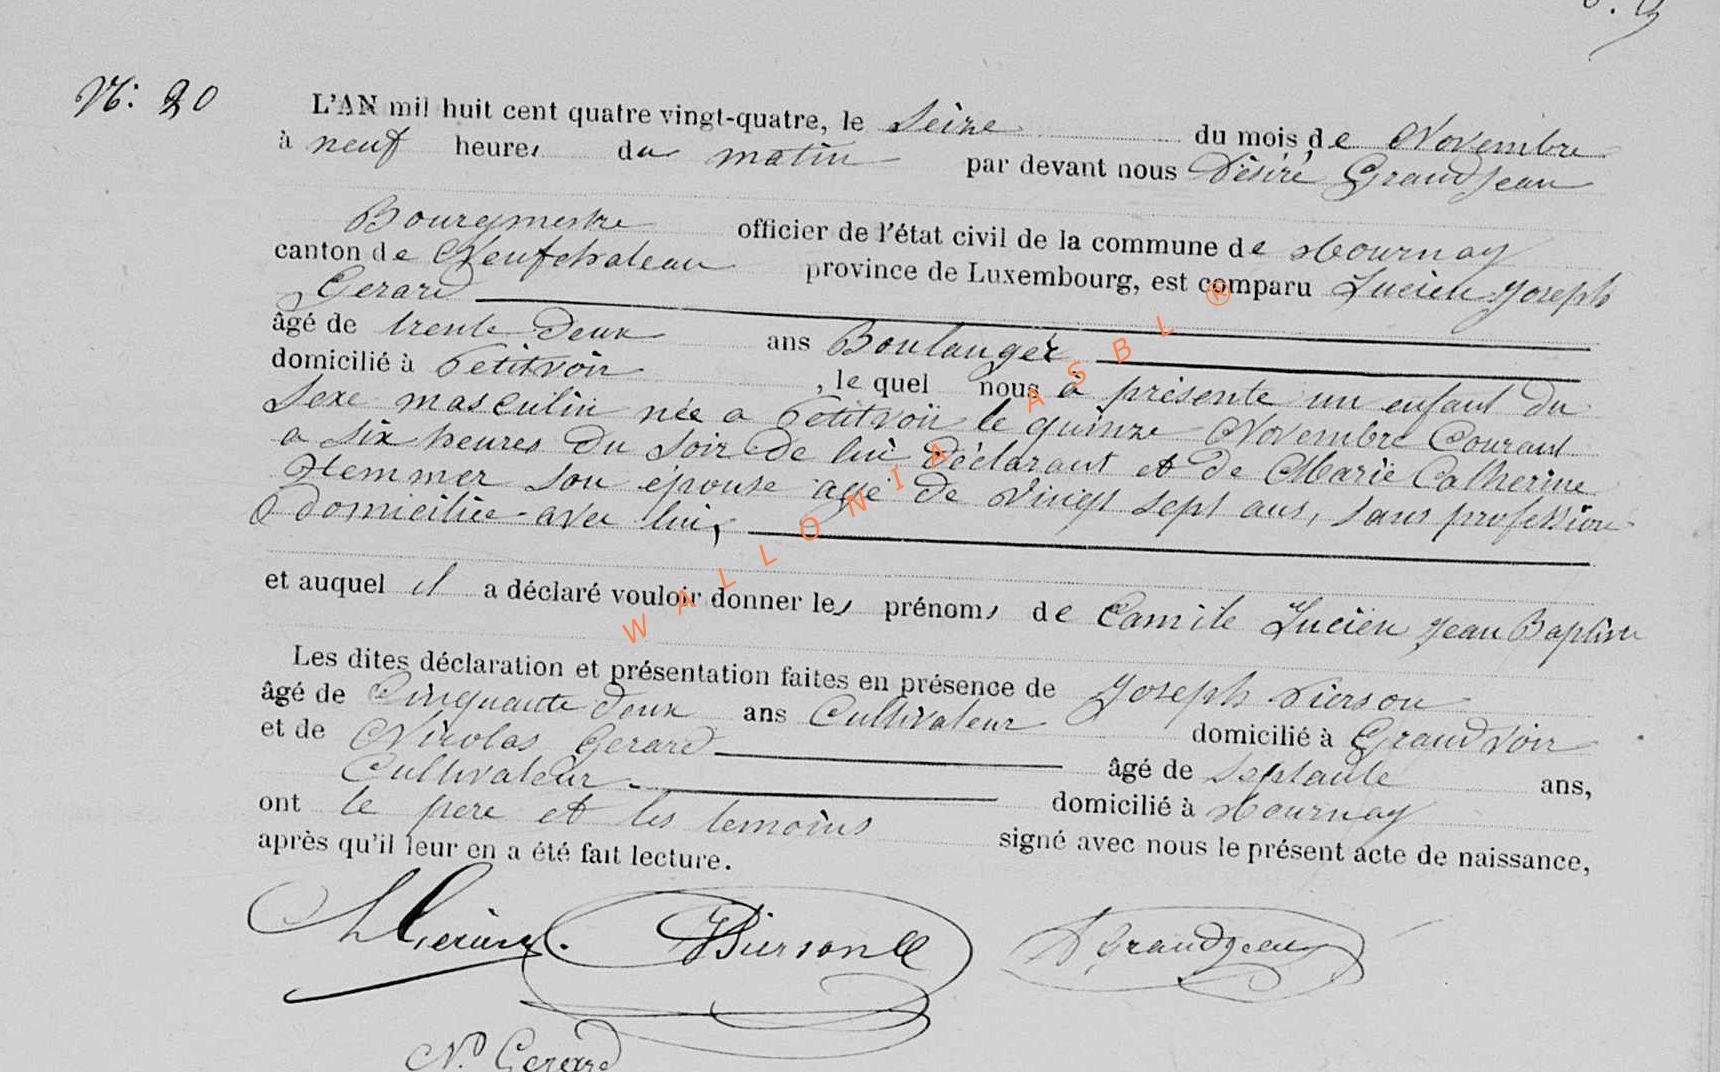 N: 20
L'AN mil huit cent quatre vingt-quatre, le Seize du mois de Novembre
à neuf heures du matin par devant nous Désiré Grandjean
Bourgmestre officier de l'état civil de la commune de Tournay
canton de Neufchateau province de Luxembourg, est comparu Lucien Joseph
Gerard
âgé de trente deux ans Boulanger
domicilié à Petitvoir, le quel nous à présente un enfant du
Sexe masculin née a Petitvoir le quinze Novembre Courant
a six heures du soir de lui déclarant et de Marie Catherine
Hemmer son épouse agé de vingt sept ans, sans profession
domiciliée avec lui,
et auquel il a déclaré vouloir donner les prénoms de Camile Lucien Jean Baptiste
Les dites déclaration et présentation faites en présence de Joseph Pierson
âgé de Cinquante deux ans Cultivateur domicilié à Grandvoir
et de Nicolas Gerard âgé de Septante ans,
Cultivateur domicilié à Tournay
ont le pere et les temoins signé avec nous le présent acte de naissance,
après qu'il leur en a été fait lecture.
L Gerard. JPierson D Grandjean
N. Gerard
WALLONIA ASBL ®